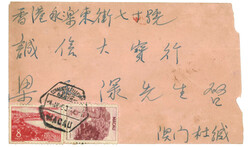 香港永樂東街七十號
誠信大寶行
梁深先生啓
澳門杜緘
MACAU
8